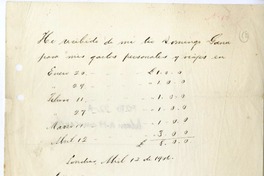 He recibido de mi tio Domingo Gana
para mis gastos personales y viajes en
Enero 20. £ 1.0.0
" 29. 1.0.0
Febro 11. 1.0.0
" 27 1.0.0
Marzo 1.0.0
Abril 12 3.0.0
£ 8.0.0
Londres, Abril 12 de